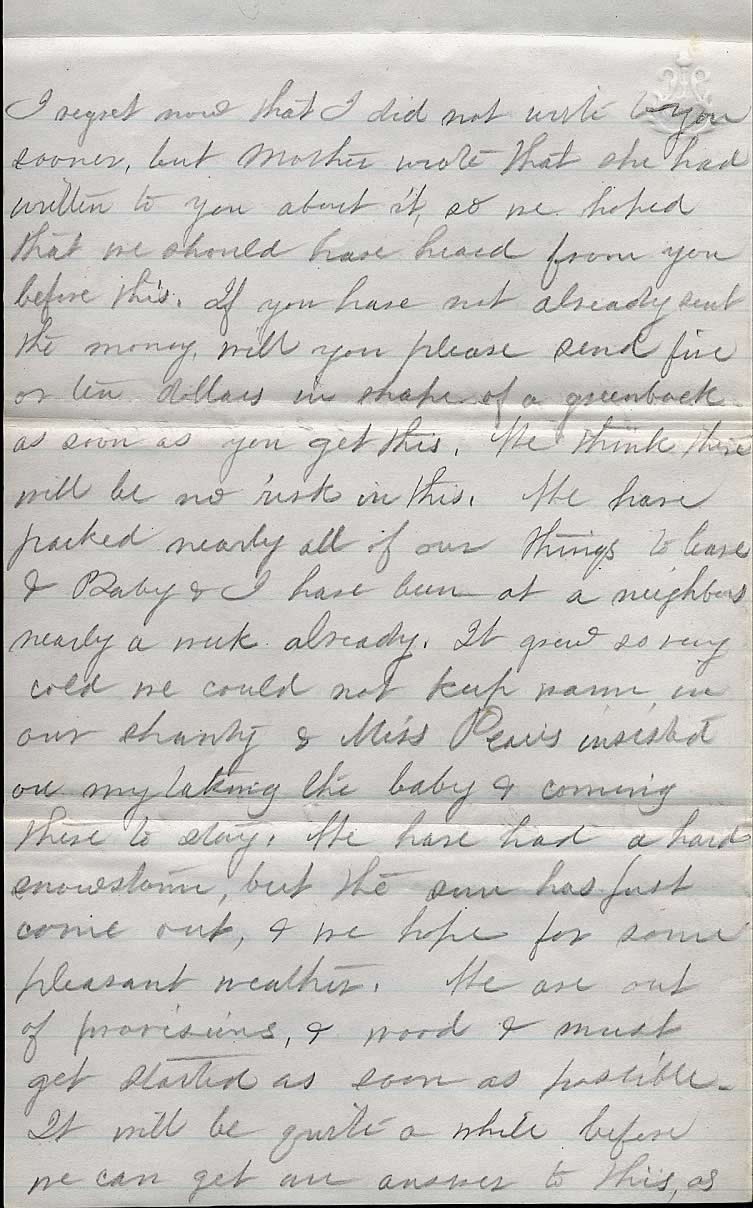 I regret now that I did not write to you
sooner, but Mother wrote that she had
written to you about it, so we hoped
that we should have heard from you
before this. If you have not already sent
the money, will you please send five
or ten dollars in shape of a greenback
as soon as you get this. We think there
will be no risk in this. We have
packed nearly all of our things to leave
& Baby & I have been at a neighbors
nearly a week already. It grew so very
cold we could not keep warm in
our shanty & Miss insisted
on my taking the baby & coming
there to stay. We have had a hard
snowstorm, but the sun has just
come out, & we hope for some
pleasant weather. We are out
of provisions, & wood & must
get started as soon as possible.
It will be quite a while before
we can get an answer to this, as